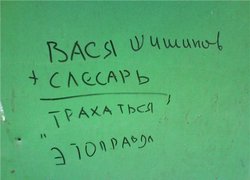 ВАСЯ ШИШИПОВ
+ СЛЕСАРЬ
ТРАХАТЬСЯ,
" ЭТОПРАВДА